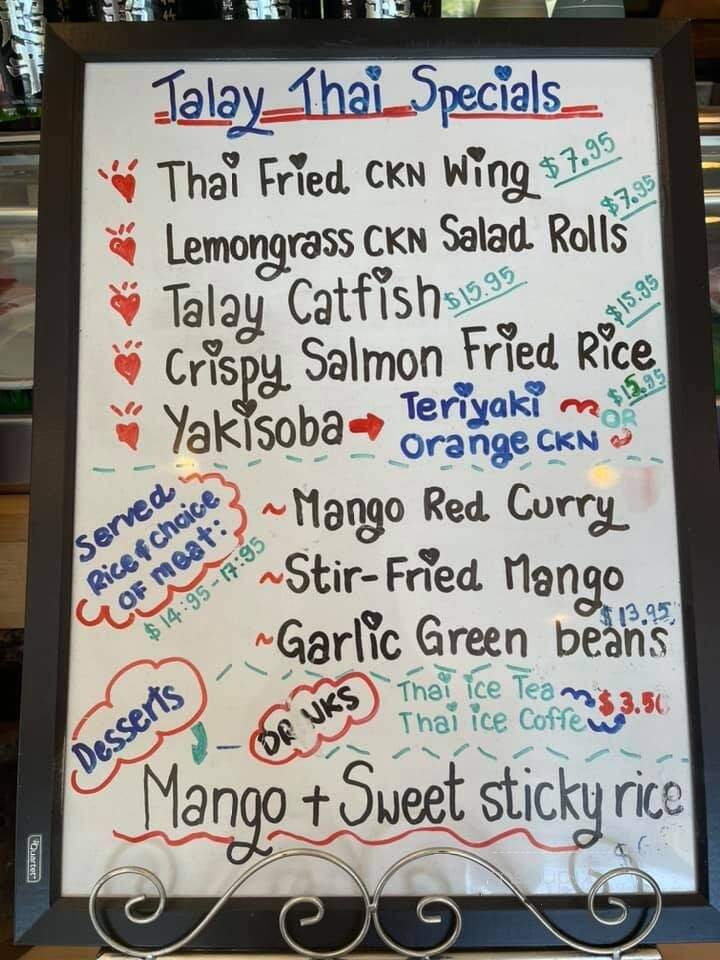 Talay Thai Specials
Thai Fried CKN Wing $7.95
Lemongrass CKN Salad Rolls $7.95
Talay Catfish $15.95
Crispy Salmon Fried Rice $15.95
Yakisoba → Teriyaki OR Orange CKN $15.95
Served
Rice & choice
OF meat:
$14.95-17.95
~Mango Red Curry
~Stir-Fried Mango
~Garlic Green beans $13.95
Desserts
DRINKS
Thai ice Tea
Thai ice Coffe
$3.50
Mango + Sweet sticky rice
Quartet